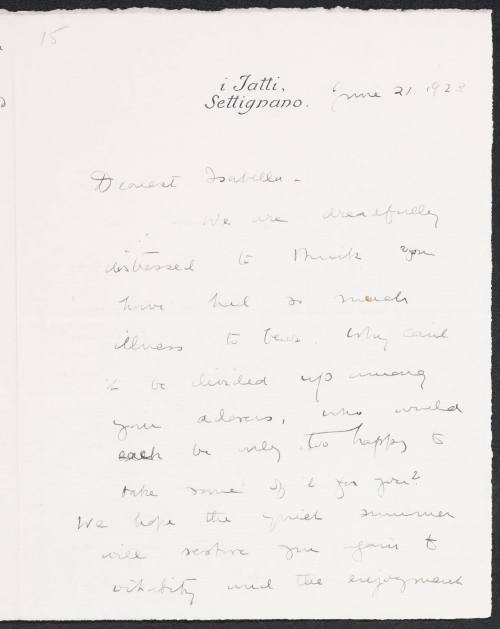 15
i Tatti,
Settignano.
June 21. 1923
Dearest Isabella -
We are dreadfully
distressed to think you
have had so much
illness to bear. Why can't
it be divided up among
your adorers, who would
each be only too happy to
take some of it for you?
We hope the quiet summer
will restore you again to
vitality and the enjoyment